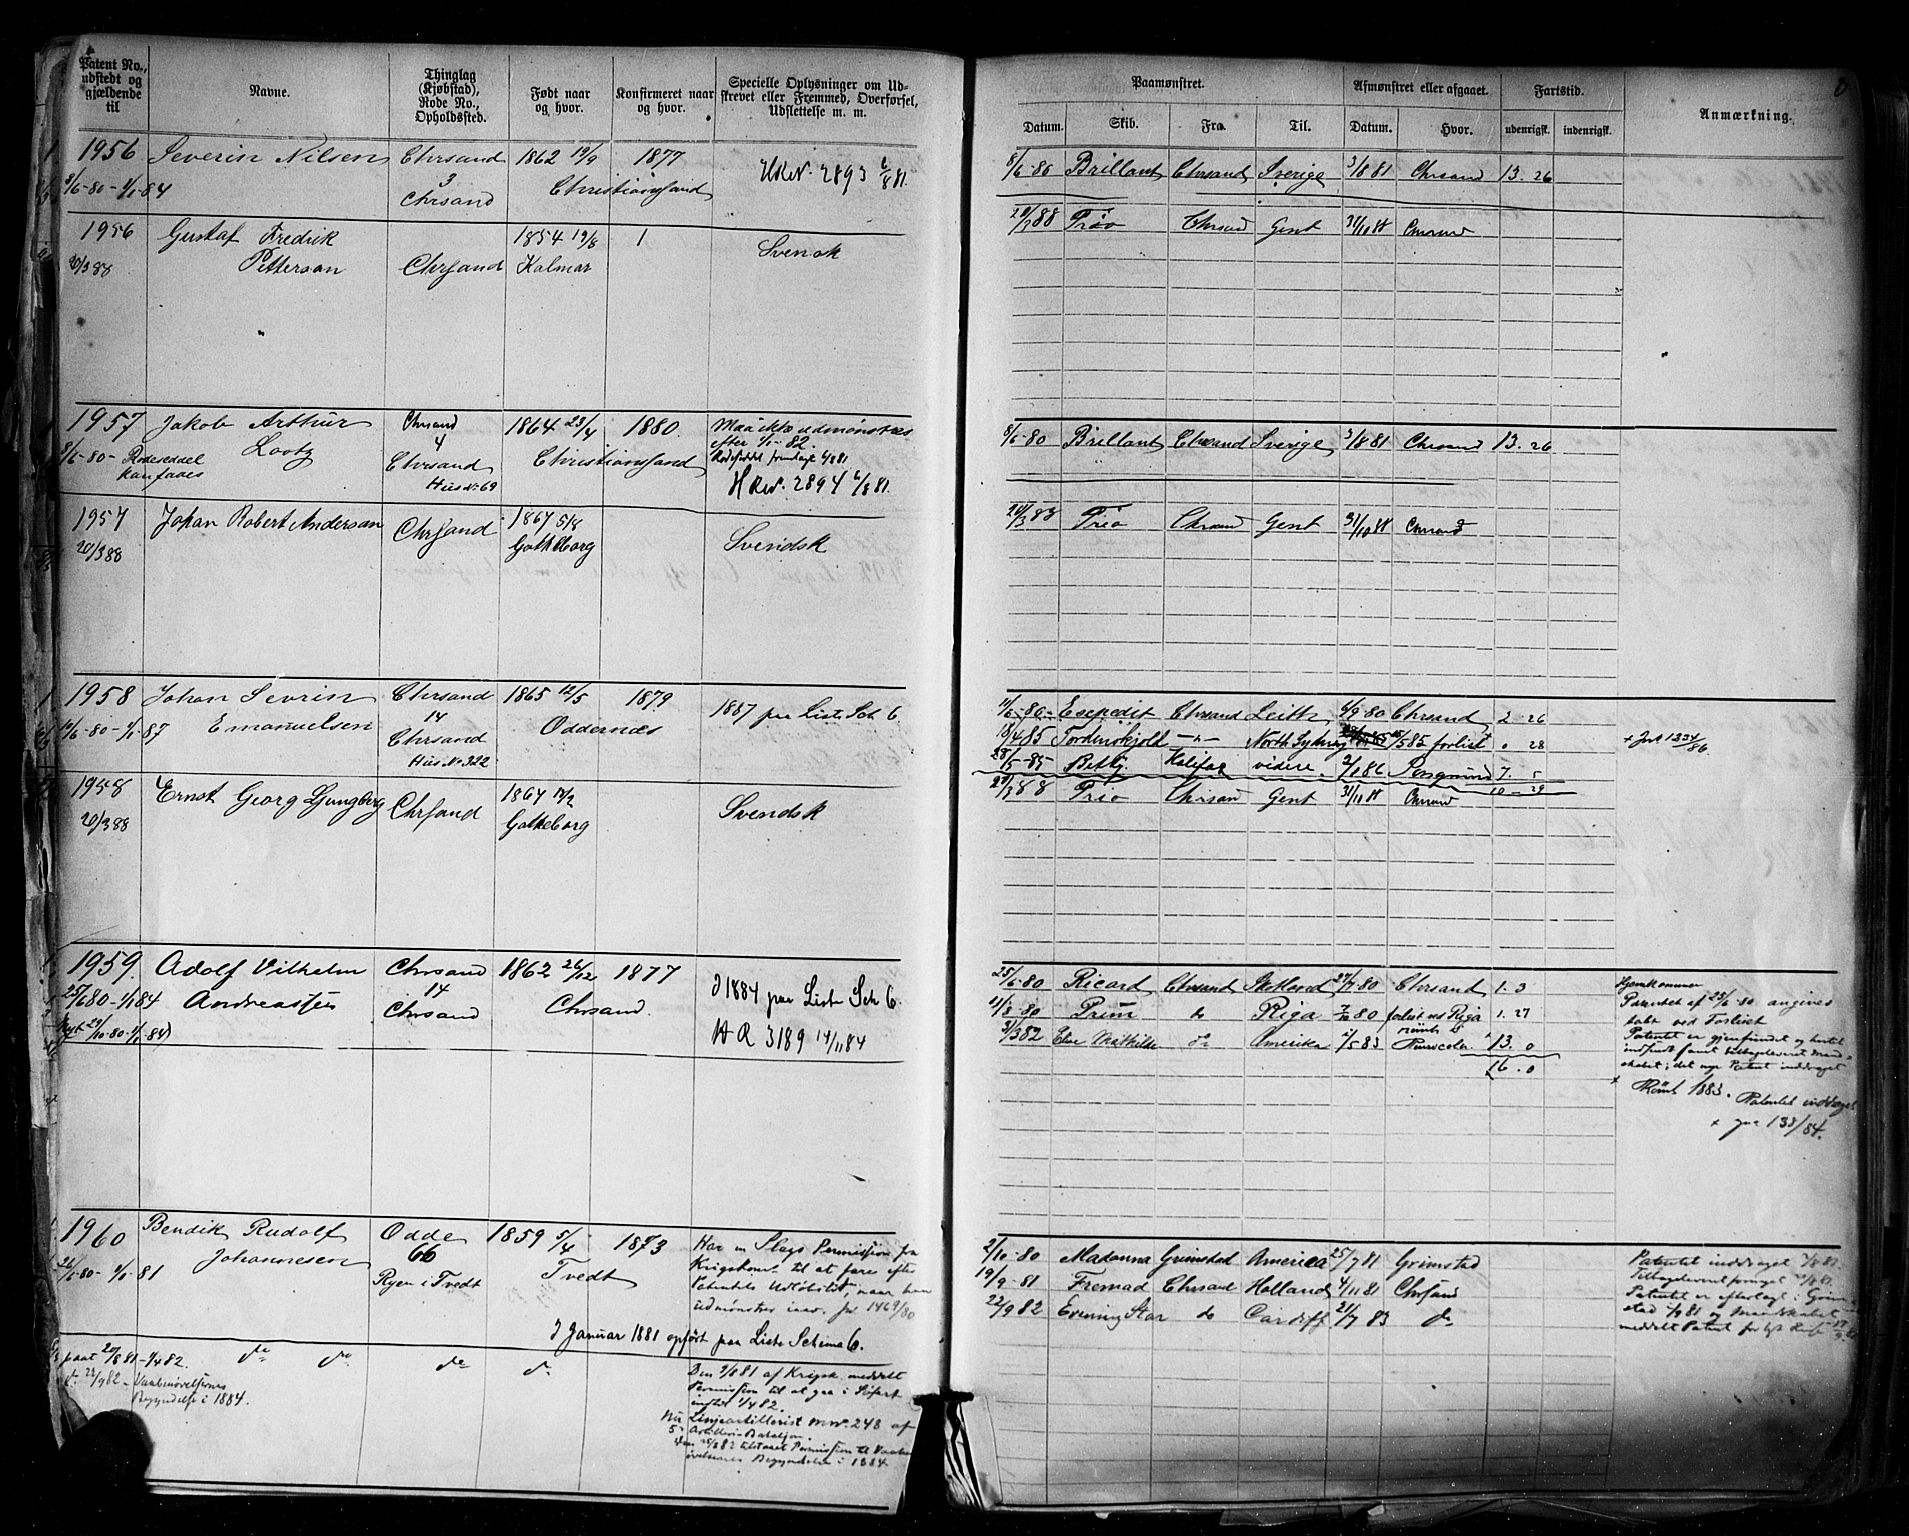 Patent No., udstedt og gjældende til
Navne.
Thinglag (Kjøbstad), Rode No., Opholdssted.
Født naar og hvor.
Konfirmeret naar og hvor.
Specielle Oplysninger om Udskrevet eller Fremmed, Overførsel, Udslettelse m. m.
Paamønstret.
Datum. Skib. Fra. Til.
Afmønstret eller afgaaet.
Datum. Hvor.
Fartstid.
udenrigsk. indenrigsk.
Anmærkning.
1956 Severin Nilsen Chrsand 1862 19/9 1877 2893 6/8 81.
8/6-80-1/1-84 3 Christianssand
Chrsand
8/6-80 Brillant Chrsand Sverige 3/8 81 Chrsand 13. 26
1956 Gustaf Fredrik 1854 19/8 1
20/3 88 Petterson Chrsand Kalmar Svensk
20/3 88 Trio Chrsand Gent 31/10 88 Chrsand
1957 Jakob Arthur Chrsand 1864 23/4 1880.
8/6-80- Rodeseddel Lootz 4 Christianssand
kan faaes Chrsand
Hus No 69
Maa ikke udmønstres
efter 1/1-82
2894 6/8 81.
8/6-80 Brillant Chrsand Sverige 3/8 81 Chrsand 13. 26
1957 Johan Robert Anderson Chrsand 1867 5/8
20/3 88 Gotheborg Svendsk
20/3 88 Trio Chrsand Gent 31/10 88 Chrsand
1958 Johan Sevrin Chrsand 1865 12/5 1879
11/6-80-1/1-87 Emanuelsen 14 Oddernæs 1887 paa Liste Sch 6.
Chrsand
Hus No 332
11/6-80- Expedit Chrsand Leith 6/9-80 Chrsand 2. 26
18/4 85 Tordenskjold -"- North Sydney 5 85 forlist 0 28
+ Jnl 1334/86.
28/5-85 Betty. Halifax videre. 2/1 86 7. 5
10-29
1958 Ernst Georg Ljungberg Chrsand 1867
20/3 88 Gotheborg Svendsk
20/3 88 Trio Chrsand Gent 31/10 88 Chrsand
1959. Adolf Vilhelm Chrsand 1862 26/12 1877
25/6 80-1/1 84 Andreassen 14 Chrsand.
Chrsand
29/10-80-1/1-84)
I 1884 paa Liste Sch 6.
3189 14/11 84
25/6-80 Ricard Chrsand 27/7-80 Chrsand 1. 3
11/8-80 Prim do Riga 80 forlist ved Riga 1. 27
31/3 82 Mathilde do Amerika 5 83 13. 0
16. 0
Hjemkommen
Patentet af 25/6-80 angives
tabt ved Forliset
Patentet er gjenfundet og hertil
indsendt samt
det nye Patent inddraget
1883. Patentet inddraget
+ Jnl 133/84.
1960 Bendik Rudolf Odde 1859 5/4 1873
26/6-80-1/1-81 Johannesen 66 Tvedt
Ryen i Tvedt
Har en Slags Permission fra
til at fare efter
Patentets Udløbstid, naar han
udmønstres iaar. Jnl 1469/80
I Januar 1881 opført paa Liste Schema 6.
2/10-80 Madonna Grimstad America 25/7 81 Grimstad
19/9-81 Fremad Chrsand Holland 4/11 81 Chrsand
22/9 82 Evening Star do Cardiff 21/7 83 do
Patentet inddraget
Patentet er efterlagt i Grim-
stad
meddelt Patent
paat 20/8 81-1/4 82. do do do do
22/9 82- Vaabenøvelsernes
Begyndelse i 1884.
Den 81 af meddelt
Permission til at gaa i
indtil 1/4 82.
Nu Linjeartillerist No 248 af
5te Artilleri Bataljon.
82 tilstaaet Permission til Vaaben-
øvelsernes Begyndelse i 1884